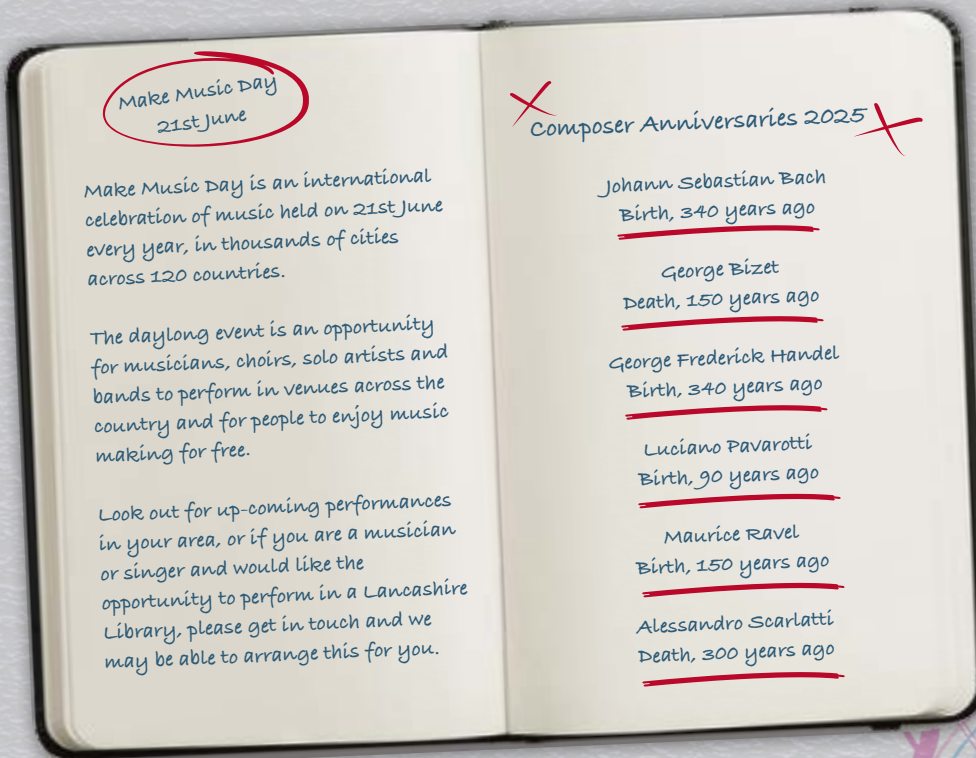 Make Music Day
21st June
Make Music Day is an international
celebration of music held on 21st June
every year, in thousands of cities
across 120 countries.
The daylong event is an opportunity
for musicians, choirs, solo artists and
bands to perform in venues across the
country and for people to enjoy music
making for free.
Look out for up-coming performances
in your area, or if you are a musician
or singer and would like the
opportunity to perform in a Lancashire
Library, please get in touch and we
may be able to arrange this for you.
Composer Anniversaries 2025
Johann Sebastian Bach
Birth, 340 years ago
George Bizet
Death, 150 years ago
George Frederick Handel
Birth, 340 years ago
Luciano Pavarotti
Birth, 90 years ago
Maurice Ravel
Birth, 150 years ago
Alessandro Scarlatti
Death, 300 years ago